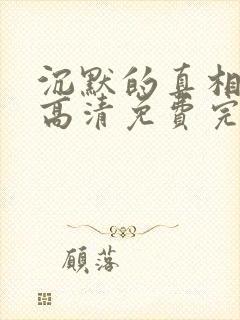 沉默的真相
高清免费完
顾落